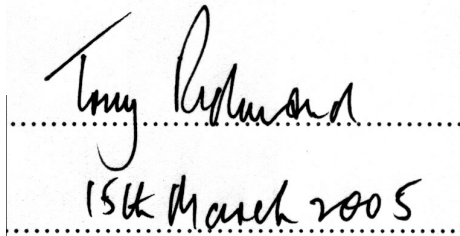 Tony Redmond
15th March 2005